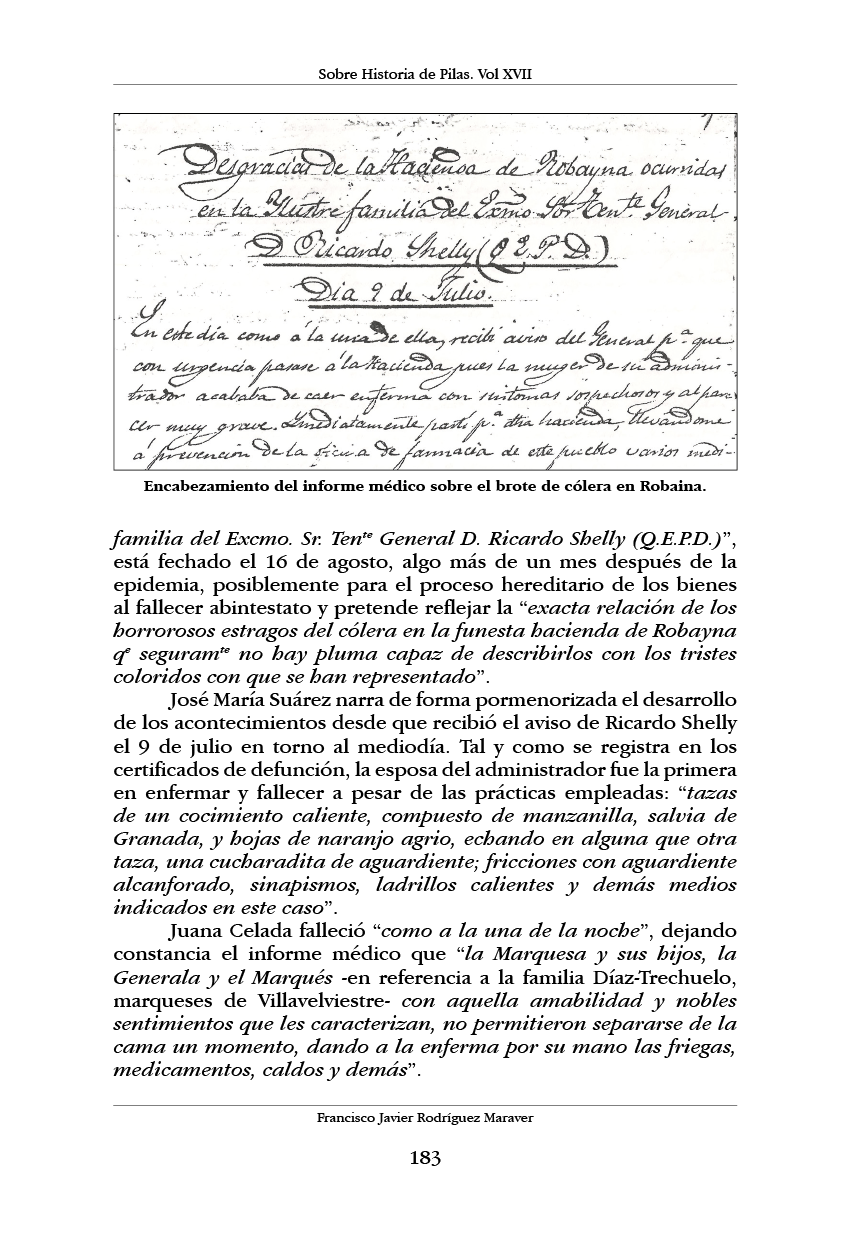 Sobre Historia de Pilas. Vol XVII
Desgracias de la Hacienda de Robayna ocurridas
en la Ilustre familia del Exmo. Sor. Tente. General
D. Ricardo Shelly (Q.E.P.D.)
Dia 9 de Julio.
En este dia como á la una de ella, recibi aviso del General pa. que
con urgencia pasase á la Hacienda pues la muger de su adminis-
trador acababa de caer enferma con sintomas sospechosos y al pare
cer muy grave. Inmediatamente parti pa. dha hacienda, llevandome
á prevencion de la oficina de farmacia de este pueblo varios medi-
Encabezamiento del informe médico sobre el brote de cólera en Robaina.
familia del Excmo. Sr. Tenᵗᵉ General D. Ricardo Shelly (Q.E.P.D.)”,
está fechado el 16 de agosto, algo más de un mes después de la
epidemia, posiblemente para el proceso hereditario de los bienes
al fallecer abintestato y pretende reflejar la “exacta relación de los
horrorosos estragos del cólera en la funesta hacienda de Robayna
qᵉ seguramᵗᵉ no hay pluma capaz de describirlos con los tristes
coloridos con que se han representado”.
José María Suárez narra de forma pormenorizada el desarrollo
de los acontecimientos desde que recibió el aviso de Ricardo Shelly
el 9 de julio en torno al mediodía. Tal y como se registra en los
certificados de defunción, la esposa del administrador fue la primera
en enfermar y fallecer a pesar de las prácticas empleadas: “tazas
de un cocimiento caliente, compuesto de manzanilla, salvia de
Granada, y hojas de naranjo agrio, echando en alguna que otra
taza, una cucharadita de aguardiente; fricciones con aguardiente
alcanforado, sinapismos, ladrillos calientes y demás medios
indicados en este caso”.
Juana Celada falleció “como a la una de la noche”, dejando
constancia el informe médico que “la Marquesa y sus hijos, la
Generala y el Marqués -en referencia a la familia Díaz-Trechuelo,
marqueses de Villavelviestre- con aquella amabilidad y nobles
sentimientos que les caracterizan, no permitieron separarse de la
cama un momento, dando a la enferma por su mano las friegas,
medicamentos, caldos y demás”.
Francisco Javier Rodríguez Maraver
183